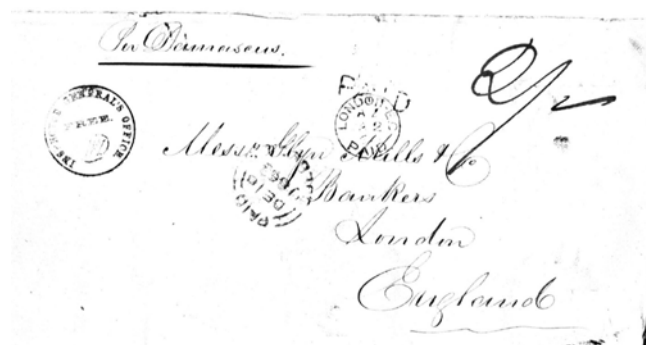 Per Damascus.
INS. GENERAL'S OFFICE
FREE
PAID
LONDON E.C.
PAID
2/-
Messrs Glyn Mills & Co
PAID
DE 10
Bankers
London
England